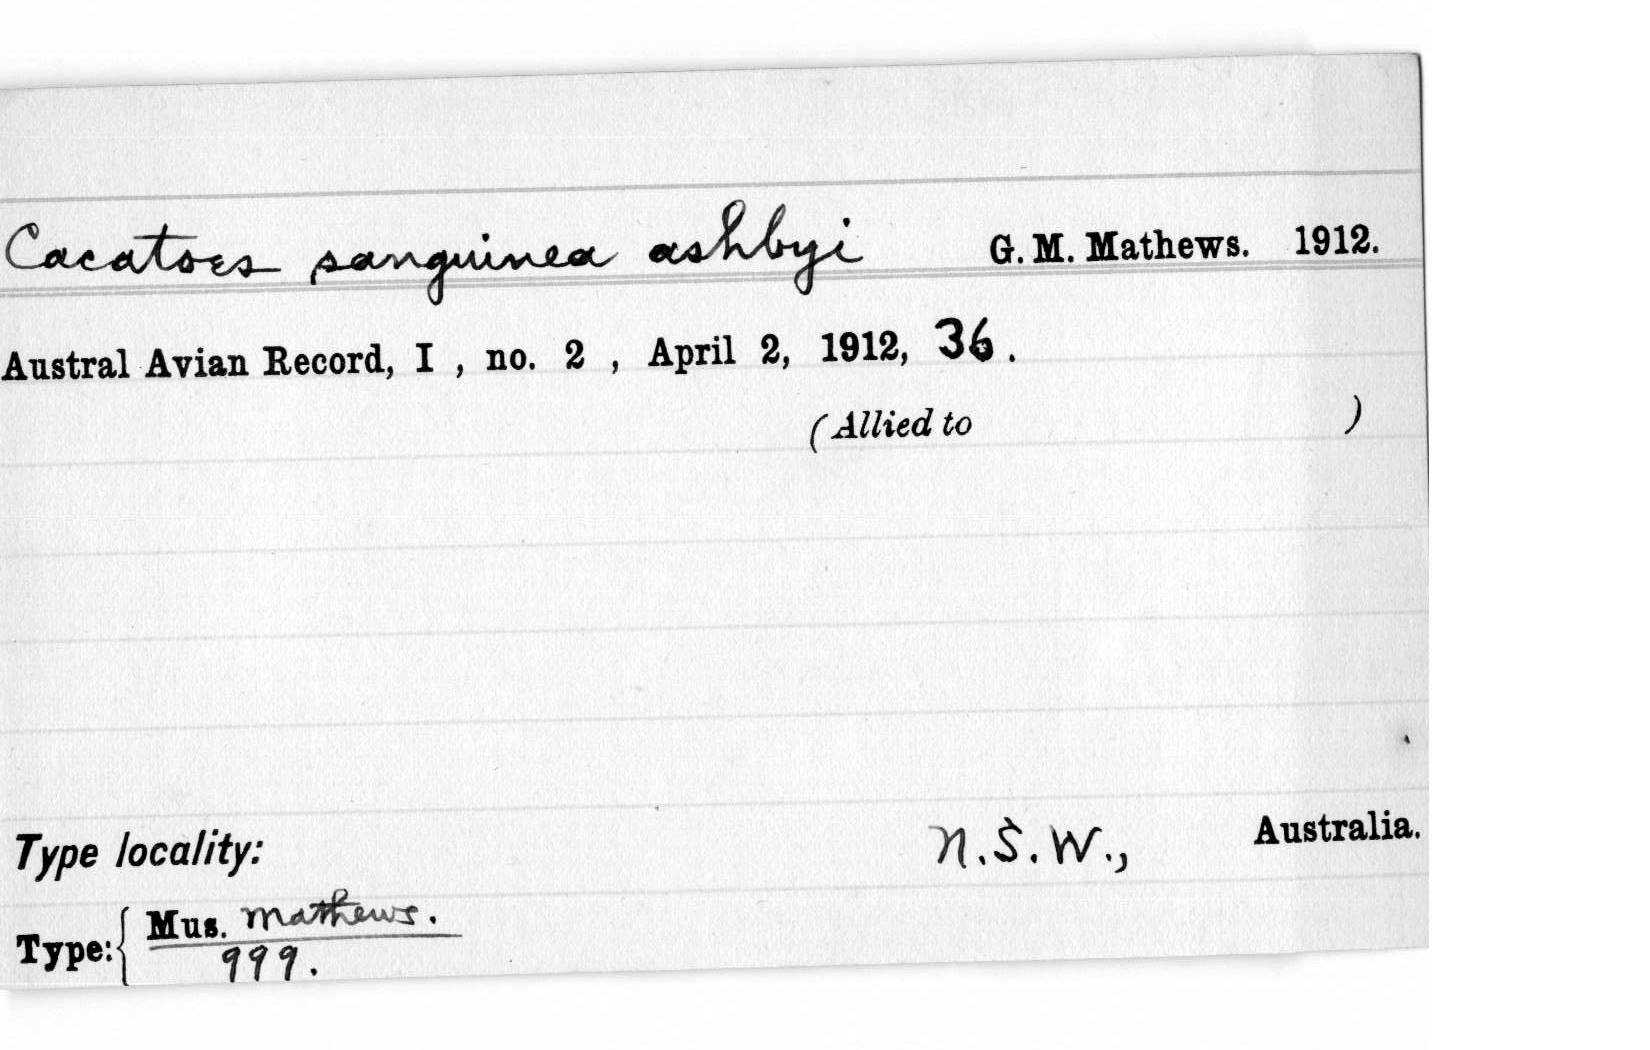 Cacatoes sanguinea ashbyi G. M. Mathews. 1912.
Austral Avian Record, I , no. 2 , April 2, 1912, 36 .
(Allied to )
Type locality: N.S.W., Australia.
Type: { Mus. Mathews.
999.